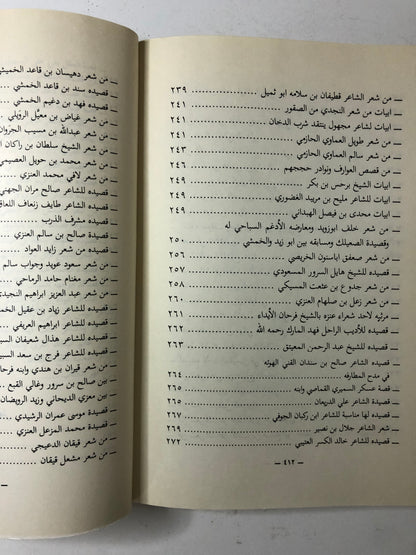 — من شعر الشاعر قطيفان بن سلامه ابو ثميل ٢٣٩
— ابيات من شعر النجدي من الصقور ٢٤١
— ابيات لشاعر مجهول ينتقد شرب الدخان ٢٤١
— من شعر طويل العماوي الحازمي ٢٤١
— من شعر سالم العماوي الحازمي ٢٤٣
— من قصص العوارف ونوادر حججهم ٢٤٦
— ابيات الشيخ برجس بن بكر ٢٤٩
— ابيات للشاعر مليح بن مربيد الغضوري ٢٤٩
— ابيات محدى بن فيصل الهبداني ٢٤٩
— من شعر خلف ابوزويد ومعارضة الأدغم السباحي له
وقصيدة الصعيلك ومسابقه بين ابو زيد والخمشي ٢٥٠
— من شعر صعفق اباستون الخريصي ٢٥٦
— قصيده للشيخ هايل السرور المسعودي ٢٥٧
— من شعر جدوع بن عثمت المسيكي ٢٥٨
— من شعر زعل بن صلهام العنزي ٢٦٠
— مرثيه لاحد شعراء عنزه بالشيخ فرحان الأيداء ٢٦١
— قصيده للأديب الراحل فهد المارك رحمه الله ٢٦٢
— قصيده للشيخ عبد الرحمن المعيتق ٢٦٣
— قصيده الشاعر صالح بن سندان الفني الهوته
في مدح المطارفه ٢٦٤
— قصة عسكر السميري القماصي وابنه ٢٦٥
— قصيدة الشاعر علي الدريعان ٢٦٥
— قصيده لها مناسبة للشاعر ابن ركبان الجوفي ٢٦٧
— شعر الشاعر جلال بن نصير ٢٦٩
— قصيده للشاعر خالد الكسر العتيبي ٢٧٢
— ٤١٢ —
— من شعر دهيسان بن قاعد الخميش
— قصيده سند بن قاعد الخمشي
— قصيدة فهد بن دغيم الخمشي
— من شعر غياض بن معبل الرويلي
— من شعر عبدالله بن مسيب الجروان
— من شعر الشيخ سلطان بن راكان
— من شعر محمد بن حويل العصيمي
— من شعر لافي محمد العنزي
— قصيده للشاعر صالح مران الجهني
— قصيده للشاعر طايف زنعاف اللعاق
— قصيده مشرف الذرب
— قصيدة صالح بن سالم العنزي
— من شعر زايد العواد
— من شعر سعود عويد وجواب سالم
— من شعر مغنام حامد الرماحي
— من شعر عبد العزيز ابراهيم النجيدي
— قصيده للشاعر زياد بن عقيل الخمش
— قصيده للشاعر ابراهيم العريفي
— قصيده للشاعر هذال شعيفان السب
— قصيده للشاعر فرج بن سعد السب
— من شعر قيران بن هندي وابنه فرحا
— بين صالح بن سرور وغالي القبع
— بين معزي الديحاني وزيد الرويضان
— قصيدة موسى عمران الرشيدي
— قصيدة محمد المزعل العنزي
— من شعر قيقان الدعيجي
— من شعر مشعل قيقان